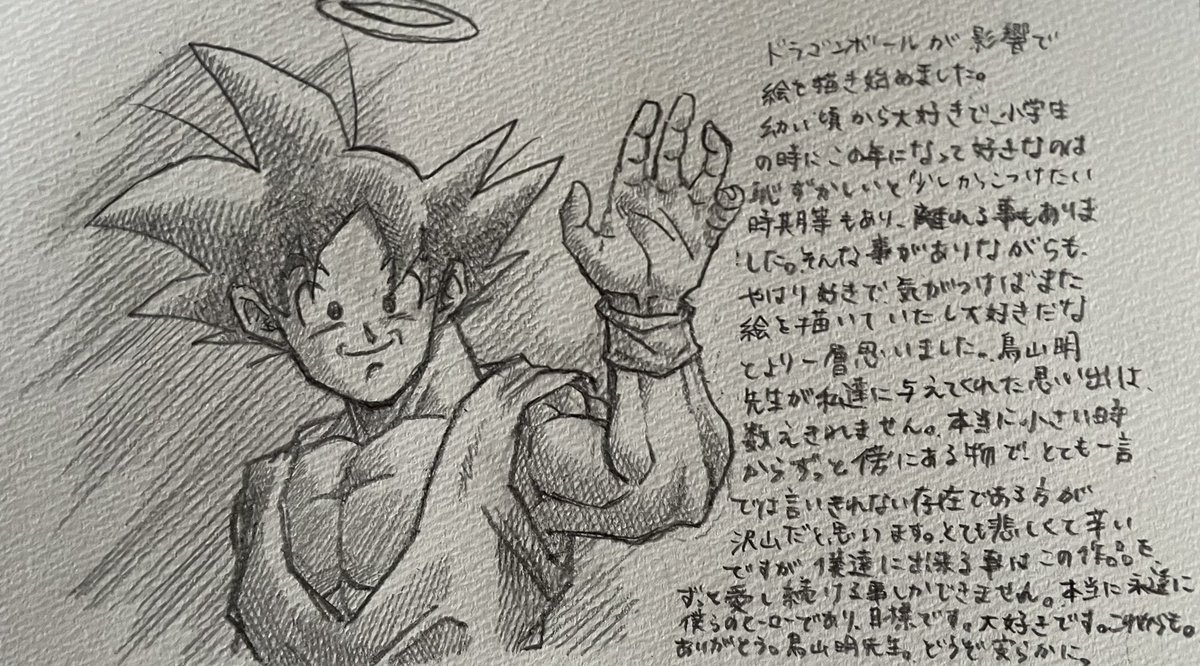 ドラゴンボールが影響で
絵を描き始めました。
幼い頃から大好きで、小学生
の時にこの年になって好きなのは
恥ずかしいと少しかっこつけたい
時期等もあり、離れる事もありま
した。そんな事がありながらも、
やはり好きで気がつけばまた
絵を描いていたし大好きだな
とより一層思いました。鳥山明
先生が私達に与えてくれた思い出は、
数えきれません。本当に小さい時
からずっと傍にある物で、とても一言
では言いきれない存在である方が
沢山だと思います。とても悲しくて辛い
ですが、僕達に出来る事はこの作品を、
ずっと愛し続ける事しかできません。本当に永遠に
僕らのヒーローであり、目標です。大好きです。これからも。
ありがとう。鳥山明先生。どうぞ安らかに。